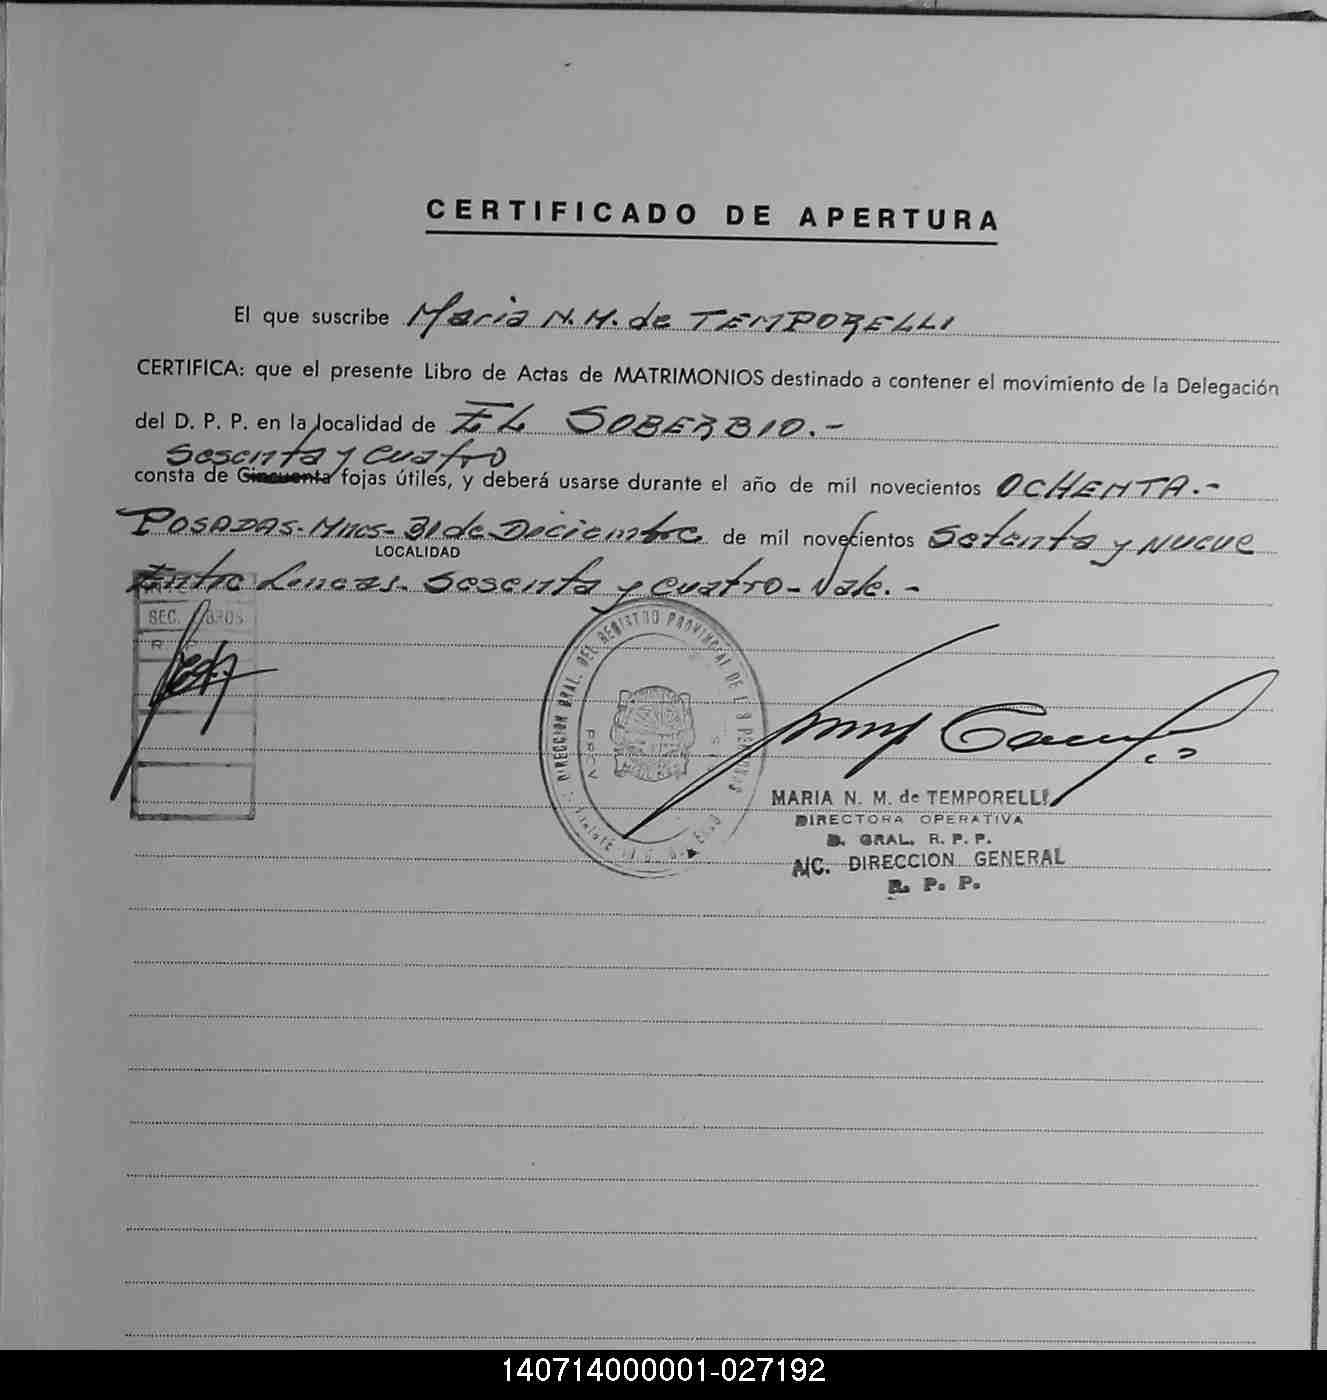 CERTIFICADO DE APERTURA
El que suscribe Maria N. M. de TEMPORELLI
CERTIFICA: que el presente Libro de Actas de MATRIMONIOS destinado a contener el movimiento de la Delegación
del D. P. P. en la localidad de EL SOBERBIO.-
Sesenta y cuatro
consta de Cincuenta fojas útiles, y deberá usarse durante el año de mil novecientos OCHENTA.-
POSADAS-Mnes-31 de Diciembre de mil novecientos Setenta y NUEVE
LOCALIDAD
Entre Lineas. Sesenta y cuatro-Vale.-
SEC. LIBROS
R. P.
DIRECCION GRAL. DEL REGISTRO PROVINCIAL DE LAS PERSONAS
PROV.
MARIA N. M. de TEMPORELLI
DIRECTORA OPERATIVA
D. GRAL. R. P. P.
A/C. DIRECCION GENERAL
R. P. P.
140714000001-027192